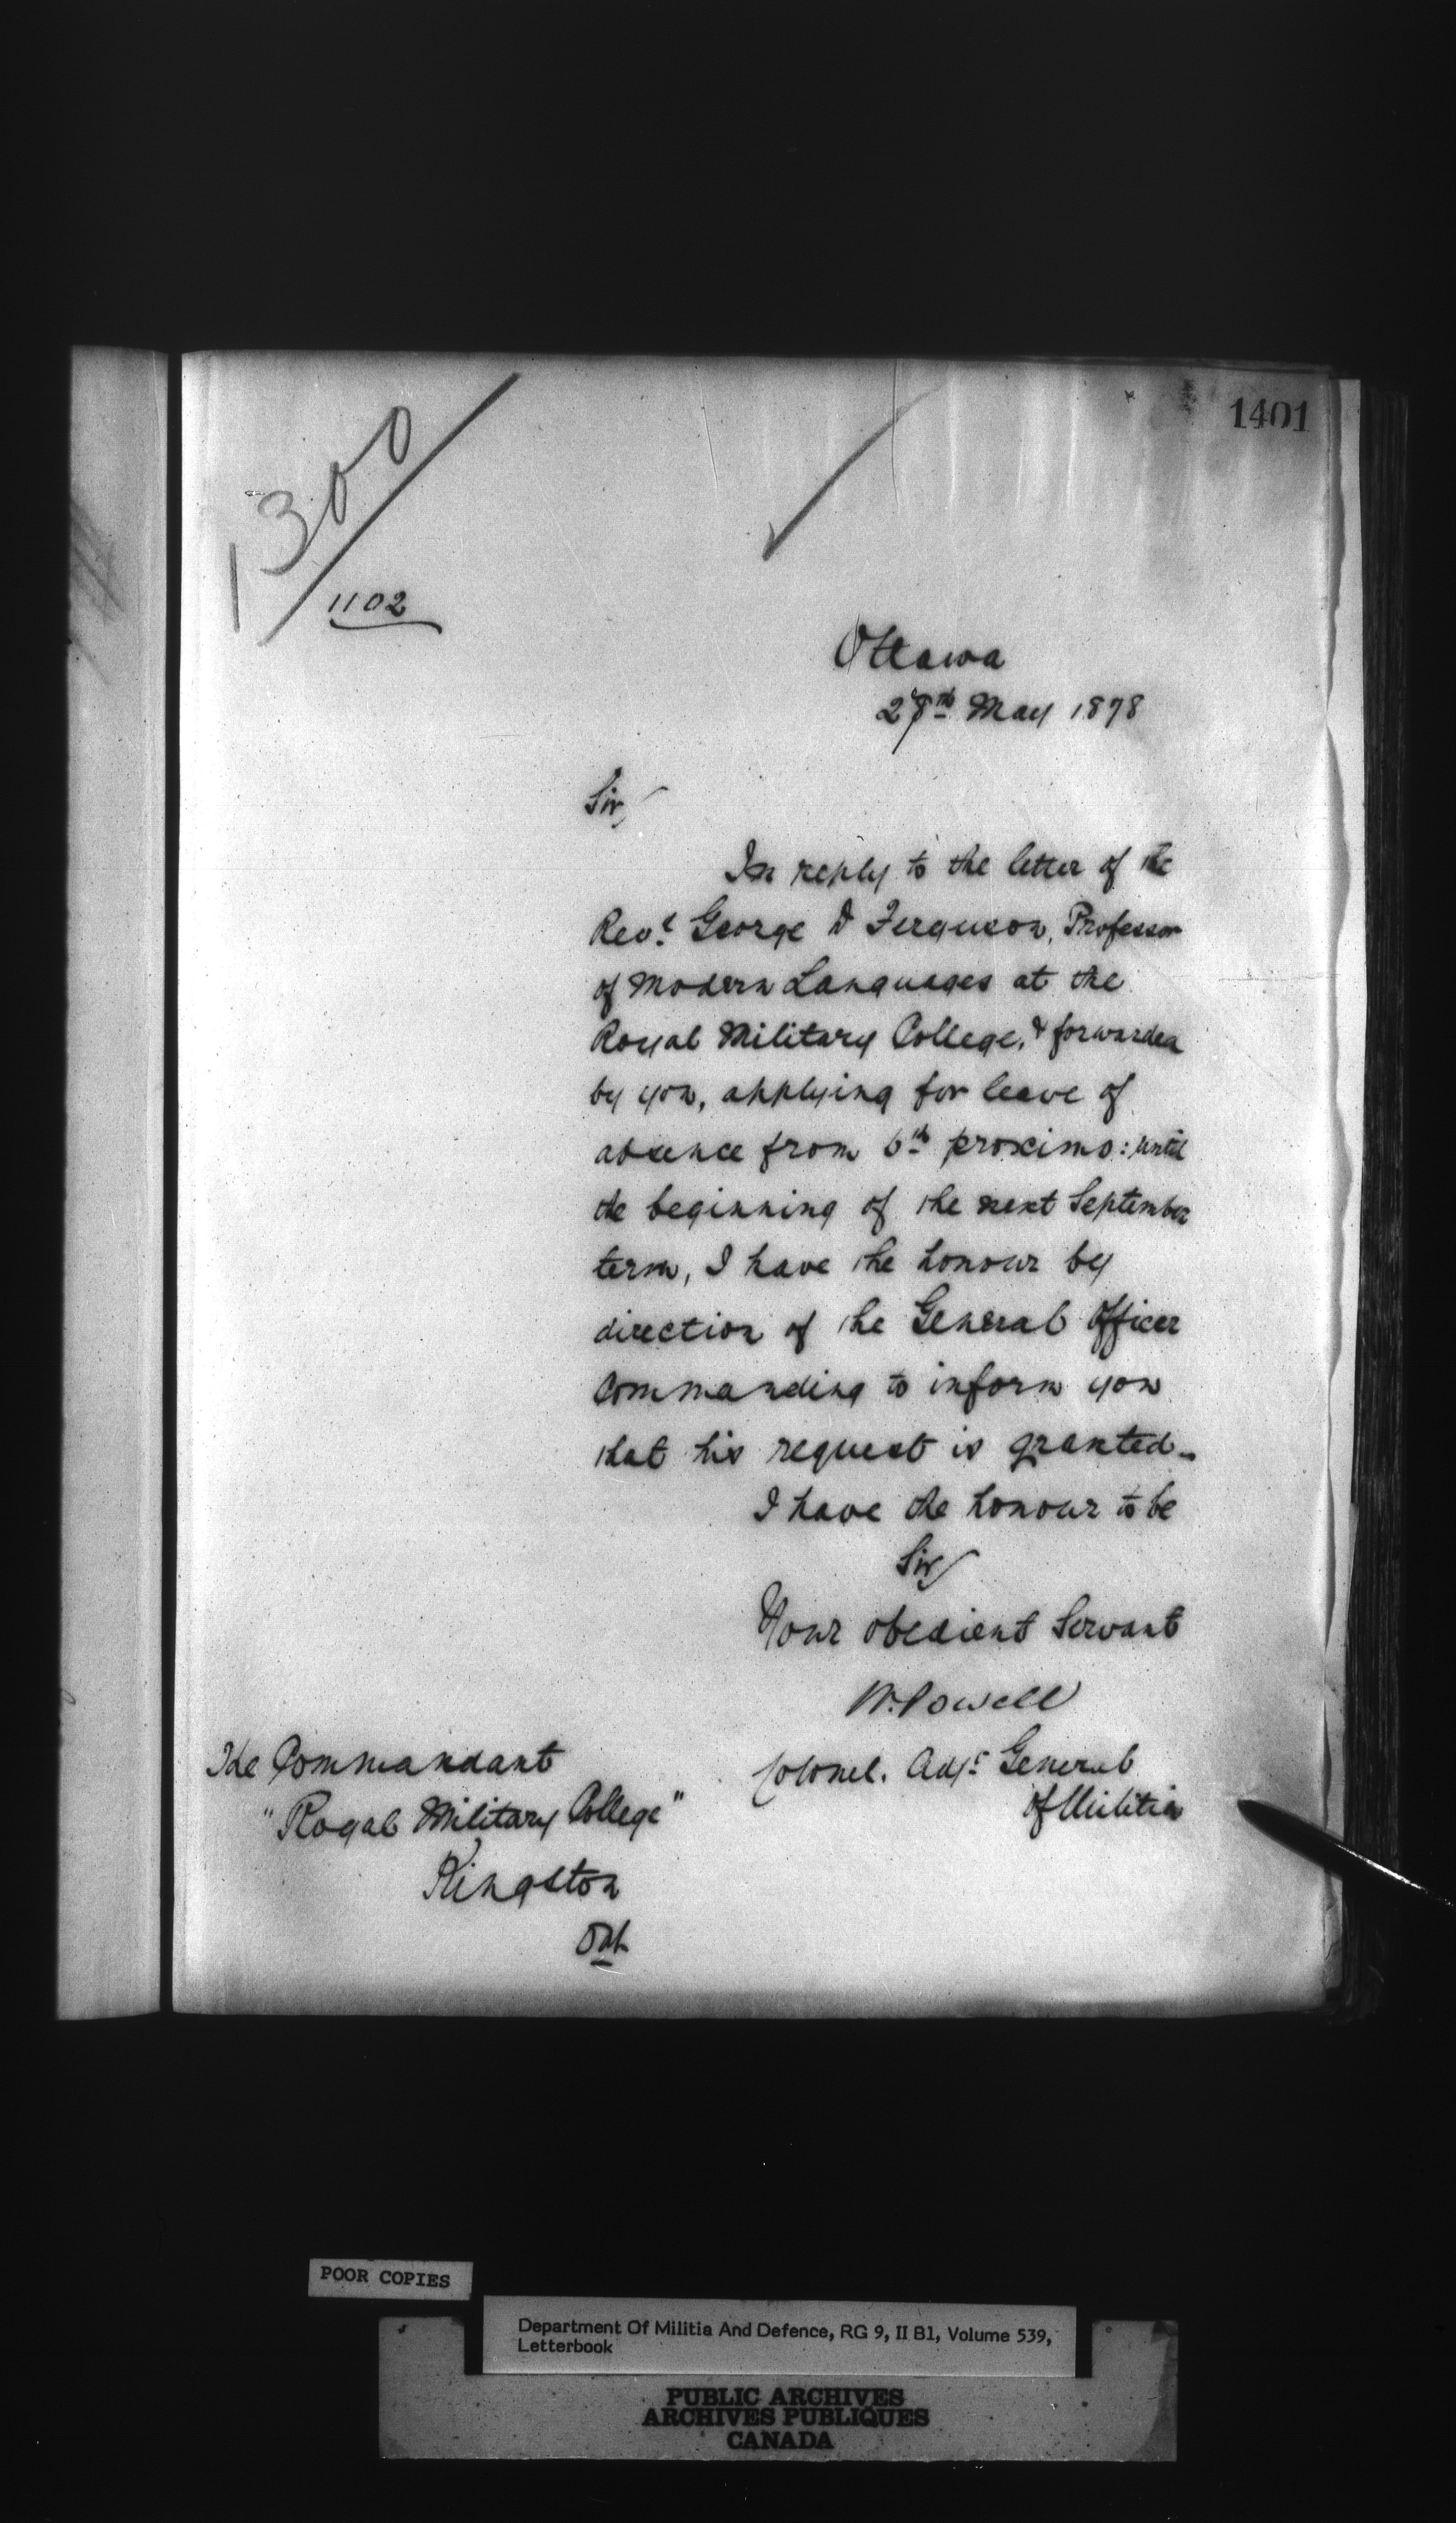 1401
1300
1102
Ottawa
28th May 1878
Sir,
In reply to the letter of the
Revd George D Ferguson, Professor
of Modern Languages at the
Royal Military College, & forwarded
by you, applying for leave of
absence from 6th proximo: until
the beginning of the next September
term, I have the honour by
direction of the General Officer
Commanding to inform you
that his request is granted_
I have the honour to be
Sir
Your obedient Servant
W. Powell
Colonel. Adjt General
of Militia
The Commandant
"Royal Military College"
Kingston
Ont
POOR COPIES
Department Of Militia And Defence, RG 9, II B1, Volume 539,
Letterbook
PUBLIC ARCHIVES
ARCHIVES PUBLIQUES
CANADA